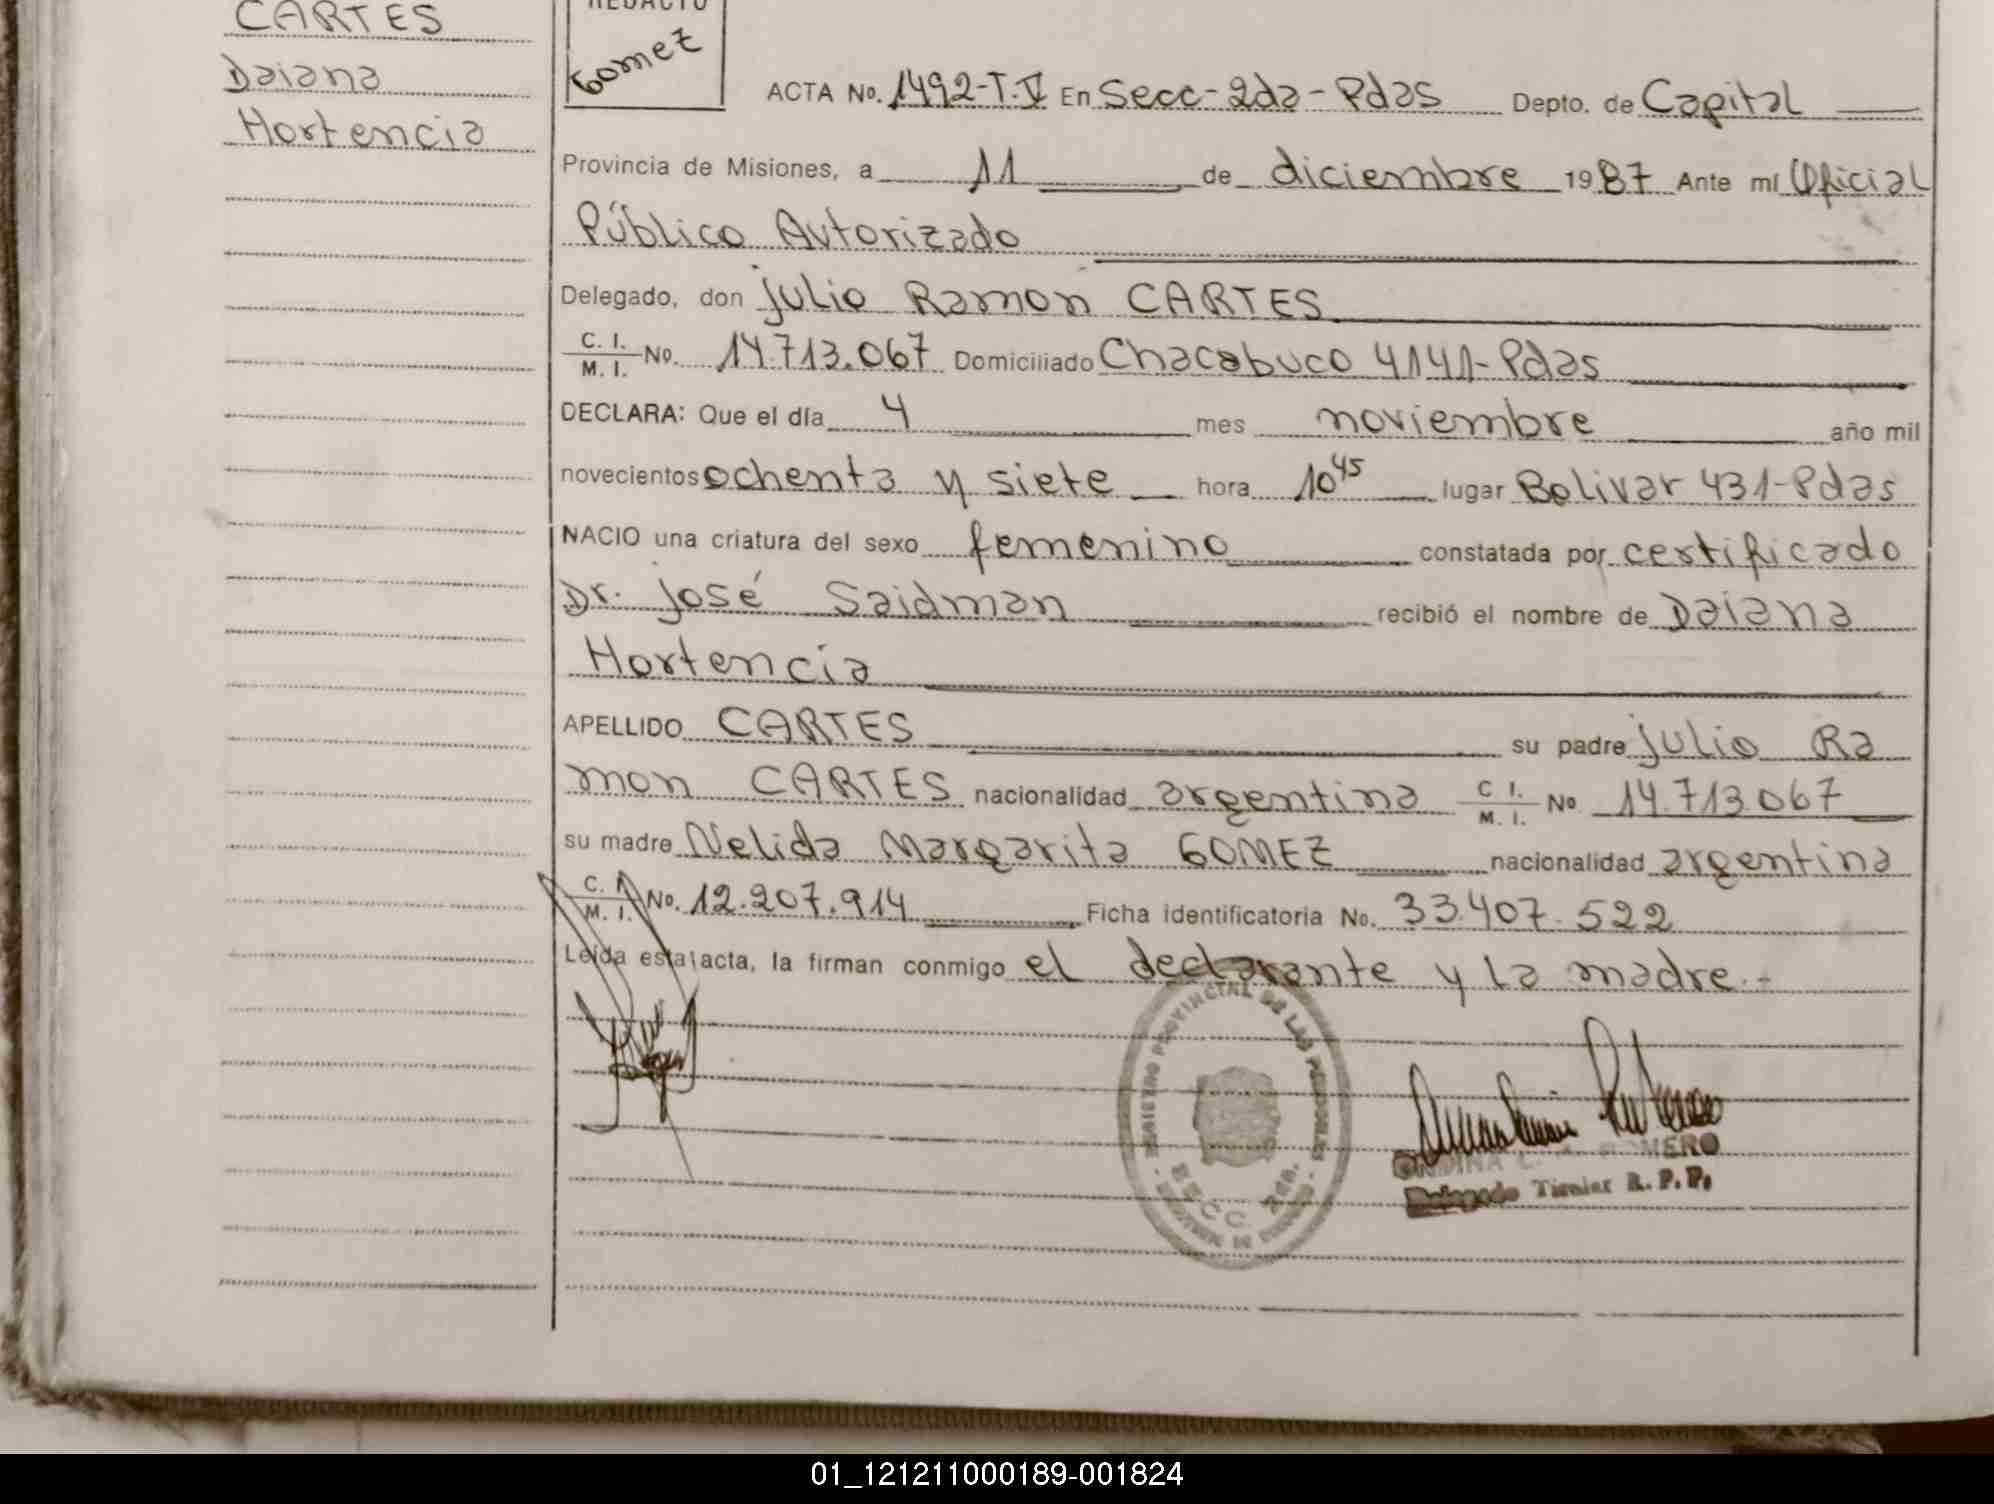 CARTES
Daiana
Hortencia
REDACTO
Gomez
ACTA No. 1492-T.V En Secc-2da-Pdas Depto. de Capital
Provincia de Misiones, a 11 de diciembre 1987 Ante mí Oficial
Público Autorizado
Delegado, don julio Ramon CARTES
C. I. M. I. No. 14.713.067 Domiciliado Chacabuco 4141-Pdas
DECLARA: Que el día 4 mes noviembre año mil
novecientos ochenta y siete hora 10 45 lugar Bolivar 431-Pdas
NACIO una criatura del sexo femenino constatada por certificado
Dr. josé Saidman recibió el nombre de Daiana
Hortencia
APELLIDO CARTES su padre julio Ra
mon CARTES nacionalidad argentina C I. M. I. No 14.713.067
su madre Nelida Margarita GOMEZ nacionalidad argentina
C. I. M. I. No. 12.207.914 Ficha identificatoria No. 33.407.522
Leída esta acta, la firman conmigo el declarante y la madre.-
PROVINCIAL DE LAS PERSONAS
SECC 2da.
ROMERO
Delegado Titular R. P. P.
01_121211000189-001824